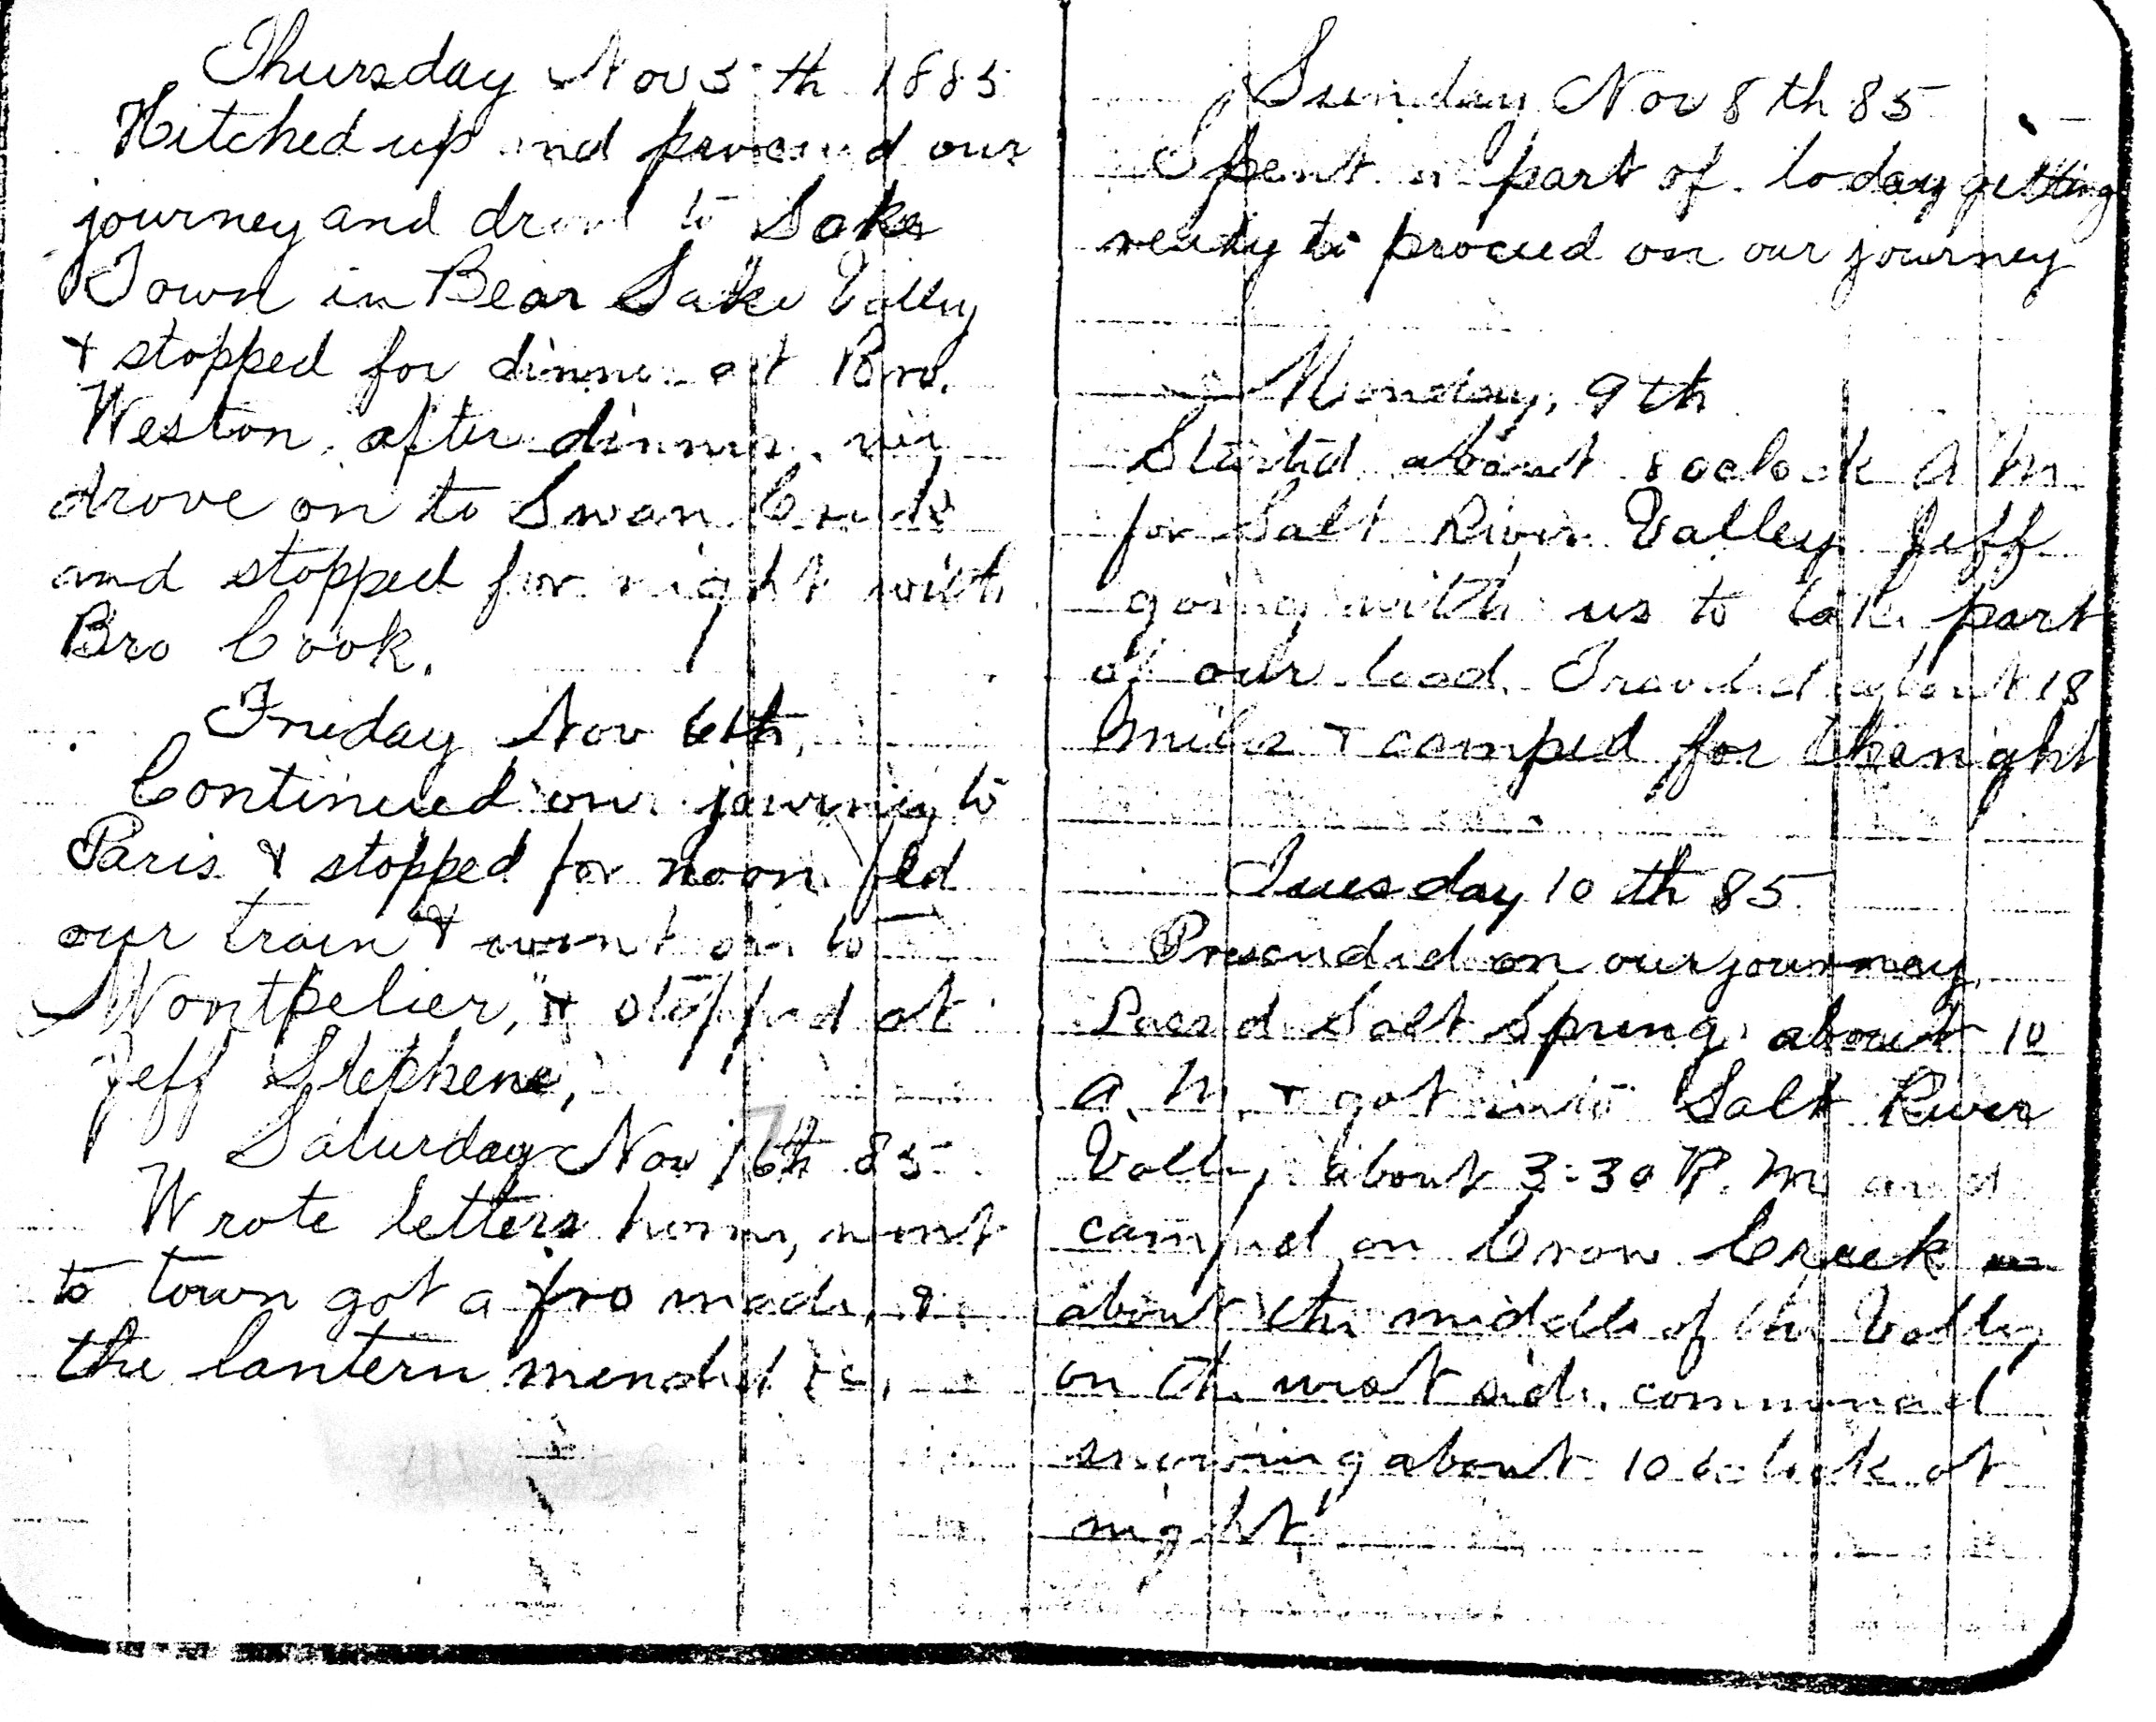 Thursday Nov 5th 1885
Hitched up and proceed our
journey and drove to Lake
Town in Bear Lake Vally
& stopped for dinner at Bro.
Weston, after dinner we
drove on to Swan Creek
and stopped for night with
Bro Cook.
Friday Nov 6th,
Continued our journey to
Paris & stopped for noon fed
our train & went on to
Montpelier, & stopped at
Jeff Stephens,
Saturday Nov 7 6th 85
Wrote letters home, went
to town got a fro made, &
the lantern mended &c,
Sunday Nov 8th 85
Spent a part of today getting
ready to proceed on our journey
Monday, 9th
Started about 8 oclock A M
for Salt River Valley Jeff
going with us to take part
of our load. Traveled about 18
miles & camped for the night
Tuesday 10th 85.
Proceeded on our journey,
Passed Salt Spring about 10
A. M. & got into Salt River
Vally about 3:30 P. M. and
camped on Crow Creek
about the middle of the Vally
on the west side. commenced
snowing about 10 oclock at
night